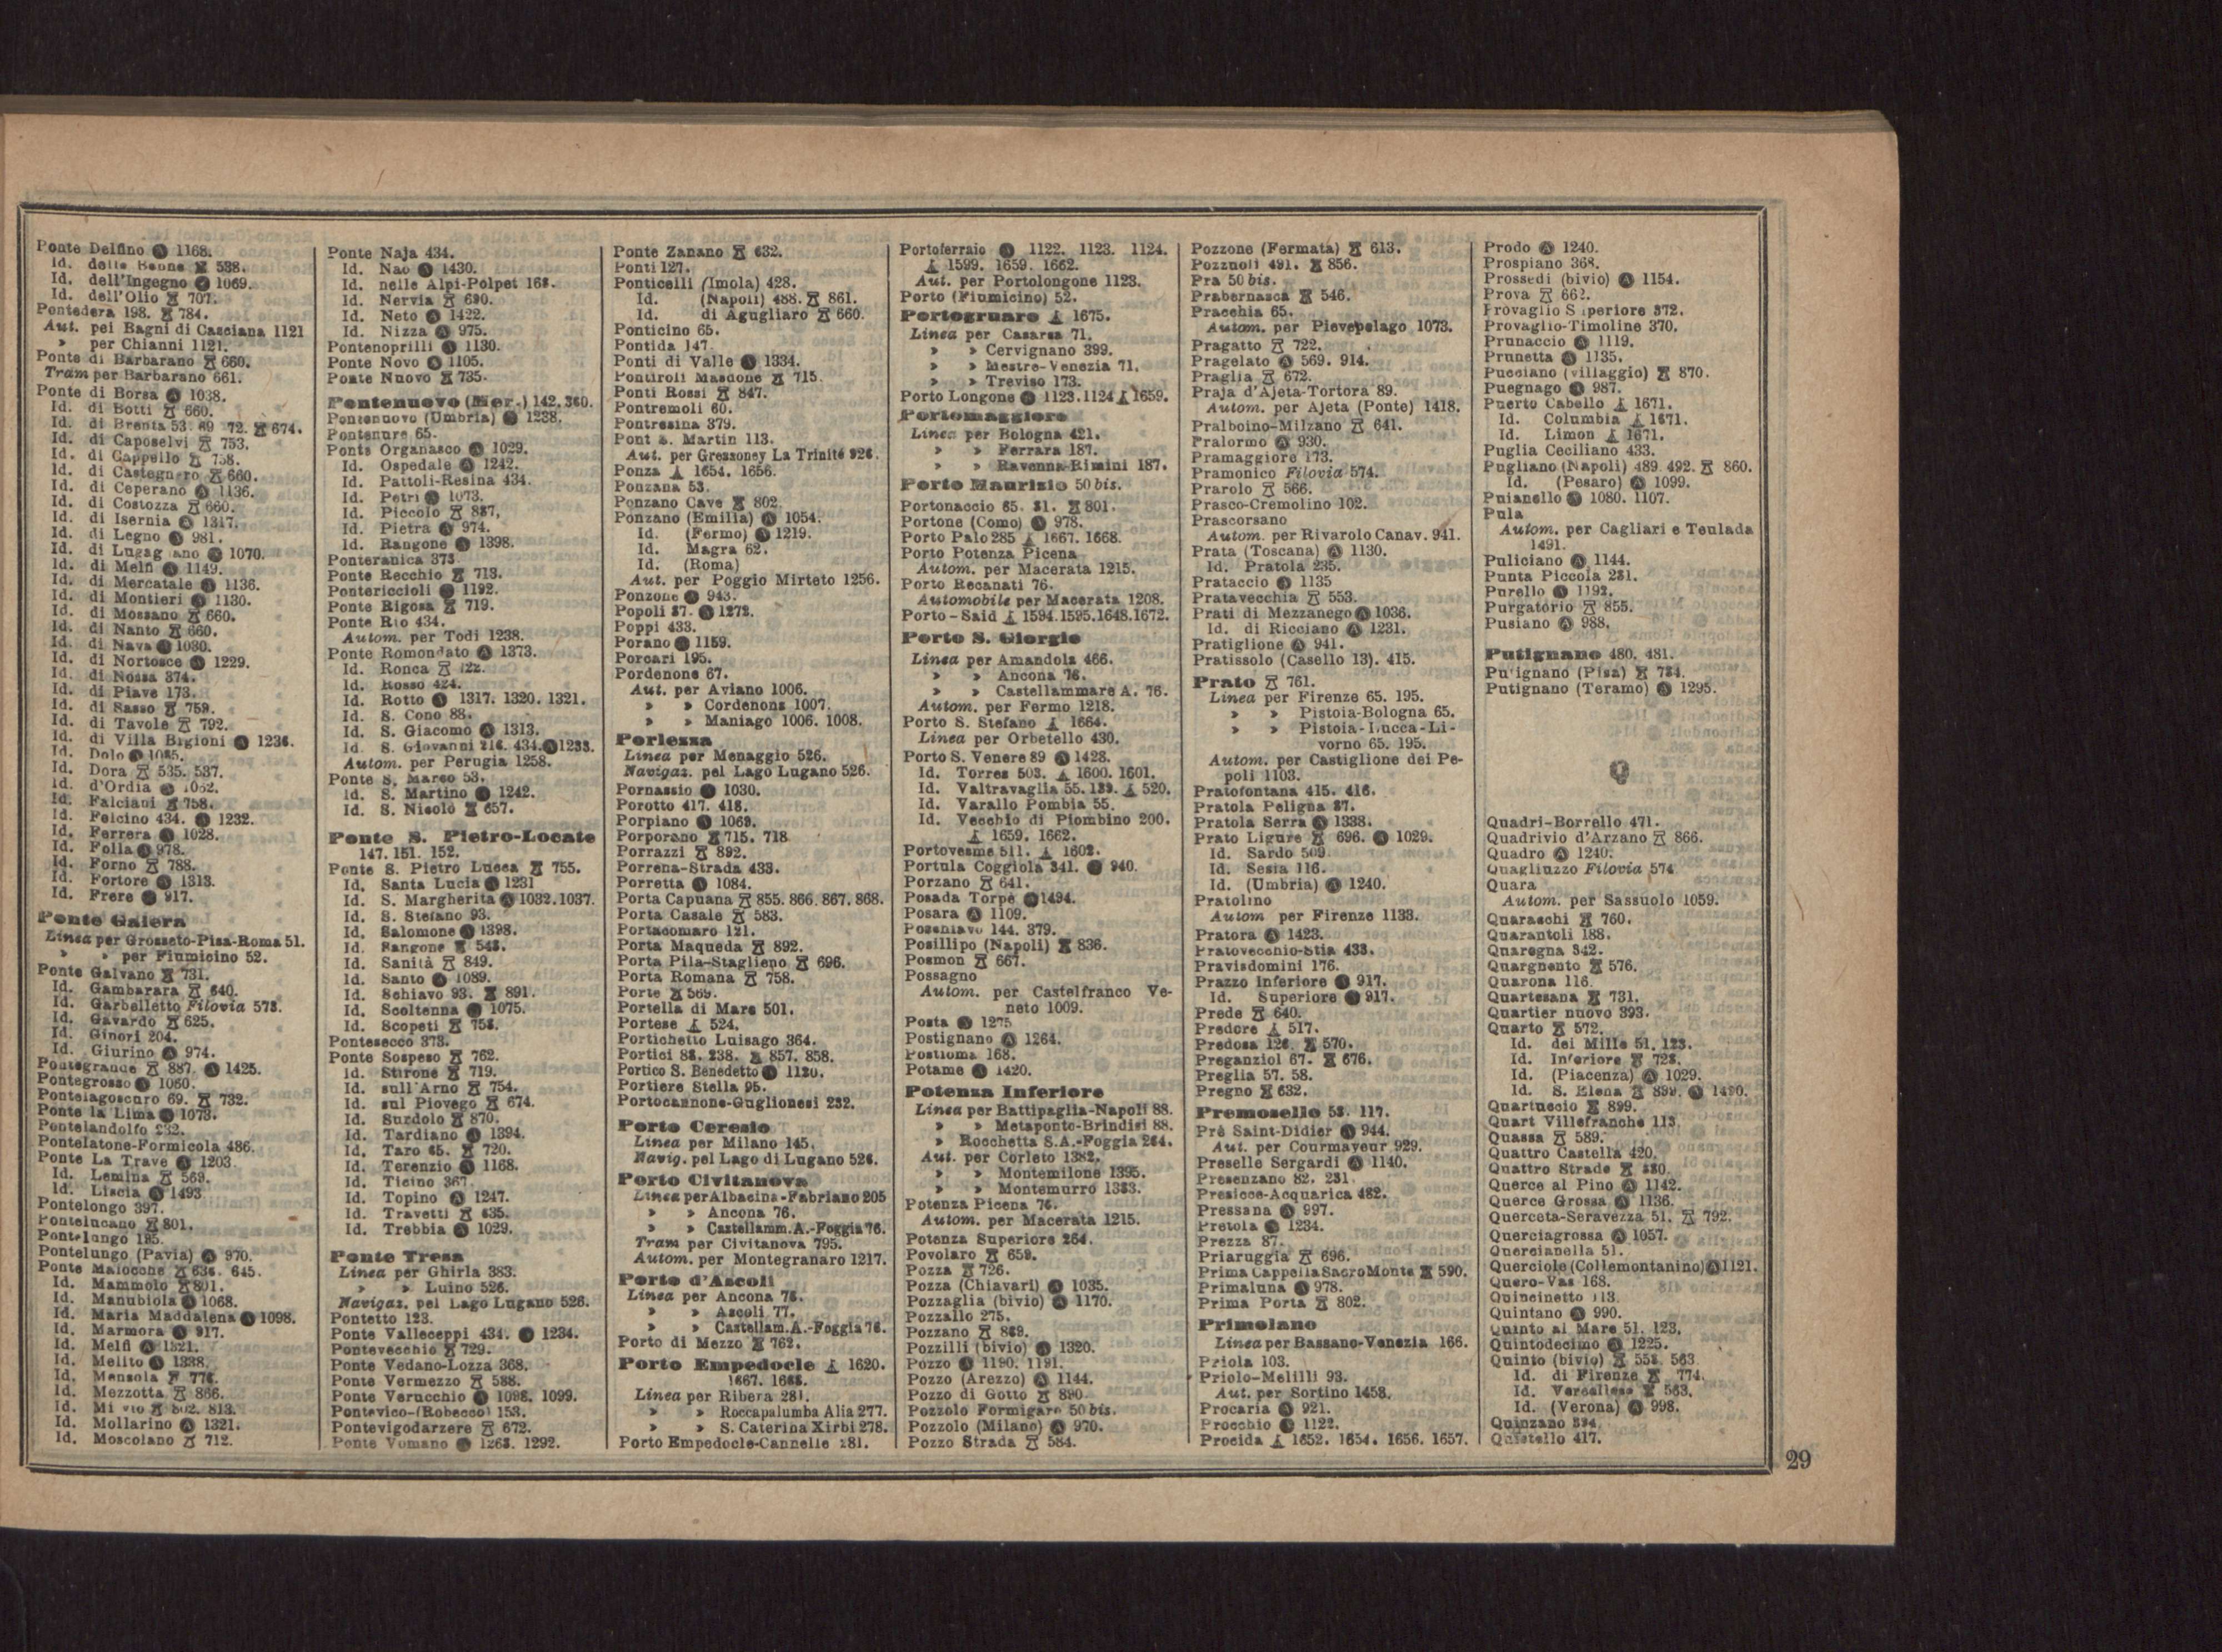 Ponte Delfino Ⓐ 1168.
Id. delle Henne 538.
Id. dell'Ingegno Ⓐ 1069.
Id. dell'Olio 707.
Pontedera 198. 784.
Aut. pei Bagni di Casciana 1121
» per Chianni 1121.
Ponte di Barbarano 660.
Tram per Barbarano 661.
Ponte di Borsa Ⓐ 1038.
Id. di Botti 660.
Id. di Brenta 53. 69 72. 674.
Id. di Caposelvi 753.
Id. di Cappello 758.
Id. di Castegnero 660.
Id. di Ceperano Ⓐ 1136.
Id. di Costozza 660.
Id. di Isernia Ⓐ 1317.
Id. di Legno Ⓐ 981.
Id. di Lugagnano Ⓐ 1070.
Id. di Melfi Ⓐ 1149.
Id. di Mercatale Ⓐ 1136.
Id. di Montieri Ⓐ 1130.
Id. di Mossano 660.
Id. di Nanto 660.
Id. di Nava Ⓐ 1030.
Id. di Nortosce Ⓐ 1229.
Id. di Nossa 374.
Id. di Piave 173.
Id. di Sasso 759.
Id. di Tavole 792.
Id. di Villa Bigioni Ⓐ 1236.
Id. Dolo Ⓐ 1085.
Id. Dora 535. 537.
Id. d'Ordia Ⓐ 1052.
Id. Falciani 758.
Id. Felcino 434. Ⓐ 1232.
Id. Ferrera Ⓐ 1028.
Id. Folla Ⓐ 978.
Id. Forno 788.
Id. Fortore Ⓐ 1313.
Id. Frere Ⓐ 917.
Ponte Galera
Linea per Grosseto-Pisa-Roma 51.
» » per Fiumicino 52.
Ponte Galvano 731.
Id. Gambarara 640.
Id. Garbelletto Filovia 573.
Id. Gavardo 625.
Id. Ginori 204.
Id. Giurino Ⓐ 974.
Pontegrande 887. Ⓐ 1425.
Pontegrosso Ⓐ 1060.
Pontelagoscuro 69. 732.
Ponte la Lima Ⓐ 1073.
Pontelandolfo 232.
Pontelatone-Formicola 486.
Ponte La Trave Ⓐ 1203
Id. Lemina 569.
Id. Liscia Ⓐ 1493
Pontelongo 397.
Pontelucano 801.
Pontelungo 185.
Pontelungo (Pavia) Ⓐ 970.
Ponte Maiocone 636. 645.
Id. Mammolo 801.
Id. Manubiola Ⓐ 1068.
Id. Maria Maddalena Ⓐ 1098.
Id. Marmora Ⓐ 917.
Id. Melfi Ⓐ 1321.
Id. Melito Ⓐ 1338.
Id. Mensola 776.
Id. Mezzotta 866.
Id. 802. 813.
Id. Mollarino Ⓐ 1321.
Id. Moscolano 712.
Ponte Naja 434.
Id. Nao Ⓐ 1430.
Id. nelle Alpi-Polpet 168.
Id. Nervia 690.
Id. Neto Ⓐ 1422.
Id. Nizza Ⓐ 975.
Pontenoprilli Ⓐ 1130.
Ponte Novo Ⓐ 1105.
Ponte Nuovo 735.
Pontenuovo (Mer.) 142. 360.
Pontenuovo (Umbria) Ⓐ 1238.
Pontenure 65.
Ponte Organasco Ⓐ 1029.
Id. Ospedale Ⓐ 1242.
Id. Pattoli-Resina 434.
Id. Petri Ⓐ 1073.
Id. Piccolo 887,
Id. Pietra Ⓐ 974.
Id. Rangone Ⓐ 1398.
Ponteranica 373
Ponte Recchio 713.
Pontericcioli Ⓐ 1192.
Ponte Rigosa 719.
Ponte Rio 434.
Autom. per Todi 1238.
Ponte Romondato Ⓐ 1373.
Id. Ronca 722.
Id. Rosso 424.
Id. Rotto Ⓐ 1317. 1320. 1321.
Id. S. Cono 88.
Id. S. Giacomo Ⓐ 1313.
Id. S. Giovanni 216. 434. Ⓐ 1233.
Autom. per Perugia 1258.
Ponte S. Marco 53.
Id. S. Martino Ⓐ 1242.
Id. S. Nicolò 657.
Ponte S. Pietro-Locate
147. 151. 152.
Ponte S. Pietro Lucca 755.
Id. Santa Lucia Ⓐ 1231
Id. S. Margherita Ⓐ 1032. 1037.
Id. S. Stefano 93.
Id. Salomone Ⓐ 1398.
Id. Sangone 543.
Id. Sanità 849.
Id. Santo Ⓐ 1089.
Id. Schiavo 93. 891.
Id. Scoltenna Ⓐ 1075.
Id. Scopeti 758.
Pontesecco 373.
Ponte Sospeso 762.
Id. Stirone 719.
Id. sull'Arno 754.
Id. sul Piovego 674.
Id. Surdolo 870.
Id. Tardiano Ⓐ 1394.
Id. Taro 65. 720.
Id. Terenzio Ⓐ 1168.
Id. Ticino 367.
Id. Topino Ⓐ 1247.
Id. Travetti 635.
Id. Trebbia Ⓐ 1029.
Ponte Tresa
Linea per Ghirla 383.
» » Luino 526.
Navigaz. pel Lago Lugano 526.
Pontetto 123.
Ponte Valleceppi 434. Ⓐ 1234.
Pontevecchio 729.
Ponte Vedano-Lozza 368.
Ponte Vermezzo 588.
Ponte Verucchio Ⓐ 1098. 1099.
Pontevico-(Robecco) 153.
Pontevigodarzere 672.
Ponte Vomano Ⓐ 1263. 1292.
Ponte Zanano 632.
Ponti 127.
Ponticelli (Imola) 428.
Id. (Napoli) 488. 861.
Id. di Agugliaro 660.
Ponticino 65.
Pontida 147
Ponti di Valle Ⓐ 1334.
Pontiroli Masdone 715.
Ponti Rossi 847.
Pontremoli 60.
Pontresina 379.
Pont S. Martin 113.
Aut. per Gressoney La Trinité 926.
Ponza 1654. 1656.
Ponzana 53.
Ponzano Cave 802.
Ponzano (Emilia) Ⓐ 1054.
Id. (Fermo) Ⓐ 1219.
Id. Magra 62.
Id. (Roma)
Aut. per Poggio Mirteto 1256.
Ponzone Ⓐ 943.
Popoli 87. Ⓐ 1272.
Poppi 433.
Porano Ⓐ 1159.
Porcari 195.
Pordenone 67.
Aut. per Aviano 1006.
» » Cordenons 1007.
» » Maniago 1006. 1008.
Porlezza
Linea per Menaggio 526.
Navigaz. pel Lago Lugano 526.
Pornassio Ⓐ 1030.
Porotto 417. 418.
Porpiano Ⓐ 1069.
Porporano 715. 718
Porrazzi 892.
Porrena-Strada 433.
Porretta Ⓐ 1084.
Porta Capuana 855. 866. 867. 868.
Porta Casale 583.
Portacomaro 121.
Porta Maqueda 892.
Porta Pila-Staglieno 696.
Porta Romana 758.
Porte 569.
Portella di Mare 501.
Portese 524.
Portichetto Luisago 364.
Portici 88. 238. 857. 858.
Portico S. Benedetto Ⓐ 1120.
Portiere Stella 95.
Portocannone-Guglionesi 232.
Porto Ceresio
Linea per Milano 145.
Navig. pel Lago di Lugano 526.
Porto Civitanova
Linea per Albacina-Fabriano 205
» » Ancona 76.
» » Castellamm. A.-Foggia 76.
Tram per Civitanova 795.
Autom. per Montegranaro 1217.
Porto d'Ascoli
Linea per Ancona 76.
» » Ascoli 77.
» » Castellam. A.-Foggia 76.
Porto di Mezzo 762.
Porto Empedocle 1620.
1667. 1668.
Linea per Ribera 281.
» » Roccapalumba Alia 277.
» » S. Caterina Xirbi 278.
Porto Empedocle-Cannelle 281.
Portoferraio Ⓐ 1122. 1123. 1124.
1599. 1659. 1662.
Aut. per Portolongone 1123.
Porto (Fiumicino) 52.
Portogruaro 1675.
Linea per Casarsa 71.
» » Cervignano 399.
» » Mestre-Venezia 71.
» » Treviso 173.
Porto Longone Ⓐ 1123. 1124 1659.
Portomaggiore
Linea per Bologna 421.
» » Ferrara 187.
» » Ravenna-Rimini 187.
Porto Maurizio 50 bis.
Portonaccio 65. 81. 801.
Portone (Como) Ⓐ 978.
Porto Palo 285 1667. 1668.
Porto Potenza Picena
Autom. per Macerata 1215.
Porto Recanati 76.
Automobile per Macerata 1208.
Porto-Said 1594. 1595. 1648. 1672.
Porto S. Giorgio
Linea per Amandola 466.
» » Ancona 76.
» » Castellammare A. 76.
Autom. per Fermo 1218.
Porto S. Stefano 1664.
Linea per Orbetello 430.
Porto S. Venere 89 Ⓐ 1428.
Id. Torres 503. 1600. 1601.
Id. Valtravaglia 55. 139. 520.
Id. Varallo Pombia 55.
Id. Vecchio di Piombino 200.
1659. 1662.
Portovesme 511. 1602.
Portula Coggiola 341. Ⓐ 940.
Porzano 641.
Posada Torpè Ⓐ 1494.
Posara Ⓐ 1109.
Poschiavo 144. 379.
Posillipo (Napoli) 836.
Posmon 667.
Possagno
Autom. per Castelfranco Ve-
neto 1009.
Posta Ⓐ 1275
Postignano Ⓐ 1264.
Postioma 168.
Potame Ⓐ 1420.
Potenza Inferiore
Linea per Battipaglia-Napoli 88.
» » Metaponto-Brindisi 88.
» Rocchetta S.A.-Foggia 264.
Aut. per Corleto 1382.
» » Montemilone 1395.
» » Montemurro 1383.
Potenza Picena 76.
Autom. per Macerata 1215.
Potenza Superiore 264.
Povolaro 659.
Pozza 726.
Pozza (Chiavari) Ⓐ 1035.
Pozzaglia (bivio) Ⓐ 1170.
Pozzallo 275.
Pozzano 869.
Pozzilli (bivio) Ⓐ 1320.
Pozzo Ⓐ 1190. 1191.
Pozzo (Arezzo) Ⓐ 1144.
Pozzo di Gotto 890
Pozzolo Formigaro 50 bis.
Pozzolo (Milano) Ⓐ 970.
Pozzo Strada 584.
Pozzone (Fermata) 613.
Pozzuoli 491. 856.
Pra 50 bis.
Prabernasca 546.
Pracchia 65.
Autom. per Pievepelago 1073.
Pragatto 722.
Pragelato Ⓐ 569. 914.
Praglia 672.
Praja d'Ajeta-Tortora 89.
Autom. per Ajeta (Ponte) 1418.
Pralboino-Milzano 641.
Pralormo Ⓐ 930.
Pramaggiore 173.
Pramonico Filovia 574.
Prarolo 566.
Prasco-Cremolino 102.
Prascorsano
Autom. per Rivarolo Canav. 941.
Prata (Toscana) Ⓐ 1130.
Id. Pratola 235.
Prataccio Ⓐ 1135
Pratavecchia 553.
Prati di Mezzanego Ⓐ 1036.
Id. di Ricciano Ⓐ 1231.
Pratiglione Ⓐ 941.
Pratissolo (Casello 13). 415.
Prato 761.
Linea per Firenze 65. 195.
» » Pistoia-Bologna 65.
» » Pistoia-Lucca-Li-
vorno 65. 195.
Autom. per Castiglione dei Pe-
poli 1103.
Pratofontana 415. 416.
Pratola Peligna 87.
Pratola Serra Ⓐ 1338.
Prato Ligure 696. Ⓐ 1029.
Id. Sardo 509
Id. Sesia 116.
Id. (Umbria) Ⓐ 1240.
Pratolino
Autom per Firenze 1133.
Pratora Ⓐ 1423.
Pratovecchio-Stia 433.
Pravisdomini 176.
Prazzo inferiore Ⓐ 917.
Id. Superiore Ⓐ 917.
Prede 640.
Predore 517.
Predosa 126. 570.
Preganziol 67. 676.
Preglia 57. 58.
Pregno 632.
Premosello 58. 117.
Prè Saint-Didier Ⓐ 944.
Aut. per Courmayeur 929.
Preselle Sergardi Ⓐ 1140.
Presenzano 82. 231
Presicce-Acquarica 482.
Pressana Ⓐ 997.
Pretola Ⓐ 1234.
Prezza 87.
Priaruggia 696.
Prima Cappella Sacro Monte 590.
Primaluna Ⓐ 978.
Prima Porta 802.
Primolano
Linea per Bassano-Venezia 166.
Priola 103.
Priolo-Melilli 93.
Aut. per Sortino 1458.
Procaria Ⓐ 921.
Procchio Ⓐ 1122.
Procida 1652. 1654. 1656. 1657.
Prodo Ⓐ 1240.
Prospiano 368.
Prossedi (bivio) Ⓐ 1154.
Prova 662.
Provaglio Superiore 372.
Provaglio-Timoline 370.
Prunaccio Ⓐ 1119.
Prunetta Ⓐ 1135.
Pucciano (villaggio) 870.
Puegnago Ⓐ 987.
Puerto Cabello 1671.
Id. Columbia 1671.
Id. Limon 1671.
Puglia Ceciliano 433.
Pugliano (Napoli) 489. 492. 860.
Id. (Pesaro) Ⓐ 1099.
Puianello Ⓐ 1080. 1107.
Pula
Autom. per Cagliari e Teulada
1491.
Puliciano Ⓐ 1144.
Punta Piccola 281.
Purello Ⓐ 1192.
Purgatorio 855.
Pusiano Ⓐ 988.
Putignano 480. 481.
Putignano (Pisa) 784.
Putignano (Teramo) Ⓐ 1295.
Q
Quadri-Borrello 471.
Quadrivio d'Arzano 866.
Quadro Ⓐ 1240.
Quagliuzzo Filovia 574
Quara
Autom. per Sassuolo 1059.
Quaracchi 760.
Quarantoli 188.
Quaregna 342.
Quargnento 576.
Quarona 116.
Quartesana 731.
Quartier nuovo 393.
Quarto 572.
Id. dei Mille 51. 123.
Id. Inferiore 728.
Id. (Piacenza) Ⓐ 1029.
Id. S. Elena 899. Ⓐ 1490.
Quartuccio 899.
Quart Villefranche 113
Quassa 589.
Quattro Castella 420.
Quattro Strade 880.
Querce al Pino Ⓐ 1142.
Querce Grossa Ⓐ 1136.
Querceta-Seravezza 51. 792.
Querciagrossa Ⓐ 1057.
Quercianella 51.
Querciole (Collemontanino) Ⓐ 1121.
Quero-Vas 168.
Quincinetto 113.
Quintano Ⓐ 990.
Quinto al Mare 51. 123.
Quintodecimo Ⓐ 1225.
Quinto (bivio) 558. 563
Id. di Firenze 774.
Id. Vercellese 563.
Id. (Verona) Ⓐ 998.
Quinzano 394.
Quistello 417.
29